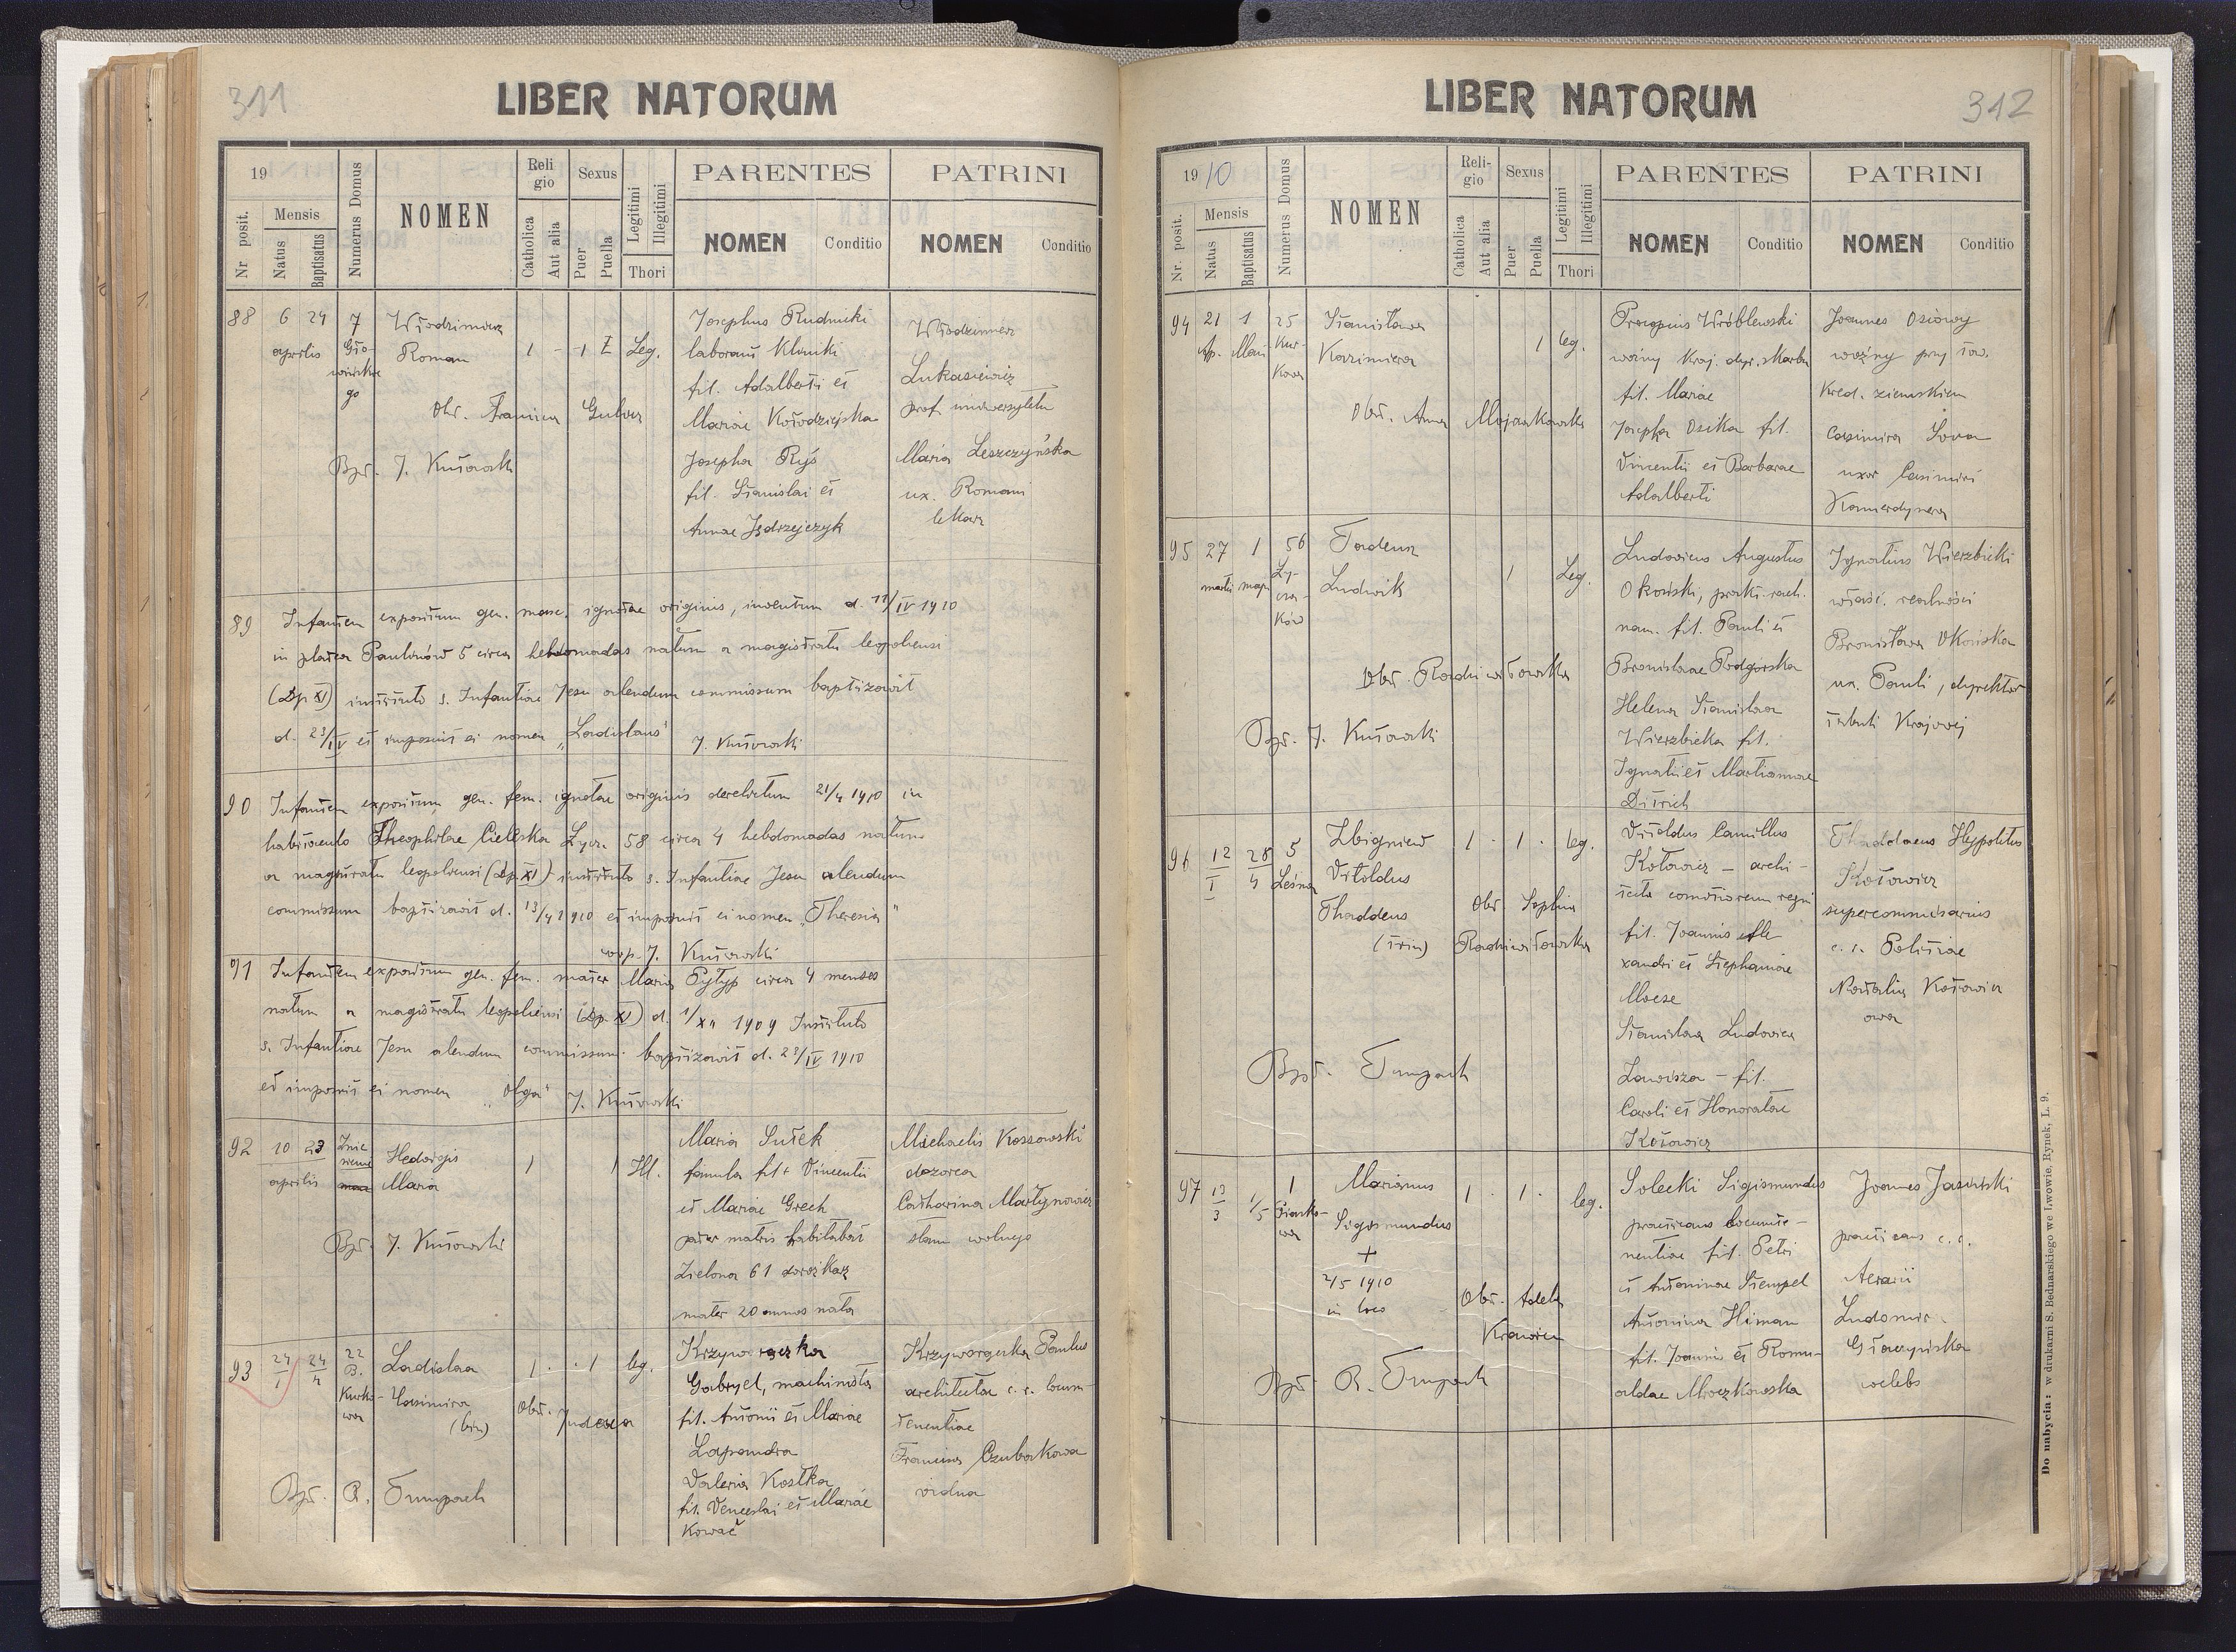 311
LIBER NATORUM
19
Nr posit.
Mensis
Natus
Baptisatus
Numerus Domus
NOMEN
Religio
Catholica
Aut alia
Sexus
Puer
Puella
Legitimi
Illegitimi
Thori
PARENTES
NOMEN Conditio
PATRINI
NOMEN Conditio
88 6 24 7
aprilis
Roman
1 - 1 Leg.
Obst. Gulasz
Bapt. J.
Josephus Rudnicki
laborans
fil. Adalberti et
Mariae Kołodziejska
Josepha Ryś
fil. Stanislai et
Annae Jędrzejczyk
Włodzimierz
Łukasiewicz
prof. uniwersytetu
Maria Leszczyńska
ux. Romani
lekarz
89 Infantem expositum gen. masc. ignotae originis, inventum d. 11/IV 1910
in platea Paulinów 5 circa hebdomadas natum a magistratu leopoliensi
(Dp XI) instituto s. Infantiae Jesu alendum commissum baptizavit
d. 23/IV et imposuit ei nomen „Ladislaus"
90 Infantem expositum gen. fem. ignotae originis derelictum 21/4 1910 in
habitaculo Theophilae Cielska Łycz. 58 circa 4 hebdomadas natum
a magistratu leopoliensi (Dp XI) instituto s. Infantiae Jesu alendum
commissum baptizavit d. 23/4 1910 et imposuit ei nomen „Theresia"
91 Infantem expositum gen. fem. mater Maria Pytyp circa 4 menses
natum a magistratu leopoliensi (Dp. XI) d. 1/XII 1909 Instituto
s. Infantiae Jesu alendum commissum baptizavit d. 23/IV 1910
et imposuit ei nomen „Olga"
92 10 23
aprilis
Hedvigis
Maria
1 1 Ill.
Bapt. J.
Maria Sutek
famula fil. Vincentii
et Mariae Grech
pater matris habitabat
Zielona 61 dorożkarz
mater 20 annos nata
Michaelis Kossowski
dozorca
Catharina Martynowicz
stanu wolnego
93 24/1 24/4 22
B.
Kurkowa
Ladislaa
Casimira
(bin)
1 . . 1 leg.
Obst.
Bapt. R. Trumpach
Gabryel, machinista
fil. Antonii et Mariae
Łapandra
Valeria Kostka
fil. Venceslai et Mariae
Kowač
Paulus
architecta c. r. locum-
tenentiae
Francisca Czubakowa
vidua
312
LIBER NATORUM
1910
Nr. posit.
Mensis
Natus
Baptisatus
Numerus Domus
NOMEN
Religio
Catholica
Aut alia
Sexus
Puer
Puella
Legitimi
Illegitimi
Thori
PARENTES
NOMEN Conditio
PATRINI
NOMEN Conditio
94 21 1 25
Ap. Maii Kur-
kowa
Stanisława
Kazimiera
1 leg.
Obst. Anna
Procopius Wróblewski
woźny Kraj. dyr. skarbu
fil. Mariae
Josepha Osika fil.
Vincentii et Barbarae
Adalberti
Joannes
woźny przy tow.
Kred. ziemskiem
Casimira Sowa
uxor Casimiri
Kamerdynera
95 27 1 56
martii maji Ły-
cza-
ków
Tadeusz
Ludwik
1 Leg.
Obst. Radziwiłowska
Bapt. J.
Ludovicus Augustus
Okoński, prakt. rach.
nam. fil. Pauli et
Bronislaae Podgórska
Helena Stanislaa
Wierzbicka fil.
Ignatii et Martiannae
Ditrich
Ignatius Wierzbicki
właśc. realności
Bronisława Okońska
ux. Pauli, dyrektor
tabuli Krajowej
96 12/1 28/4 5
Leśna
Zbigniew
Vitoldus
Thaddeus
(trin)
1 . 1 . leg.
Obst. Sophia
Radziwiłowska
Bapt. Trumpach
Vitoldus Camillus
Kotowicz - archi-
tecta
fil. Joannis Ale
xandri et Stephaniae
Moese
Stanislaa Ludovica
Zawisza - fil.
Caroli et Honoratae
Kotowicz
Thaddaeus Hyppolitus
Kotowicz
supercommissarius
c. r. Politiae
Natalia Kotowicz
owa
97 13/3 1/5 1
Piasko-
wa
Marianus
Sigismundus
+
2/5 1910
in loco
1 . 1 . leg.
Obst. Adela
Krawiec
Bapt. R. Trumpach
Solecki Sigismundus
practicans locumte-
nentiae fil. Petri
et Antoninae Stempel
Antonina Himan
fil. Joannis et Romu-
aldae Mroczkowska
Joannes Jasiński
practicans c. r.
Aerarii
Ludomir
caelebs
Do nabycia: w drukarni S. Bednarskiego we Lwowie, Rynek, L. 9.